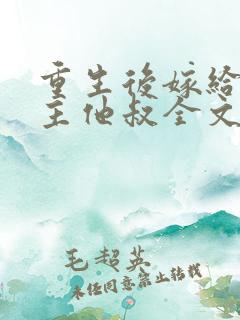 重生後嫁給
主他叔全文
毛超英
未任同意禁止转载